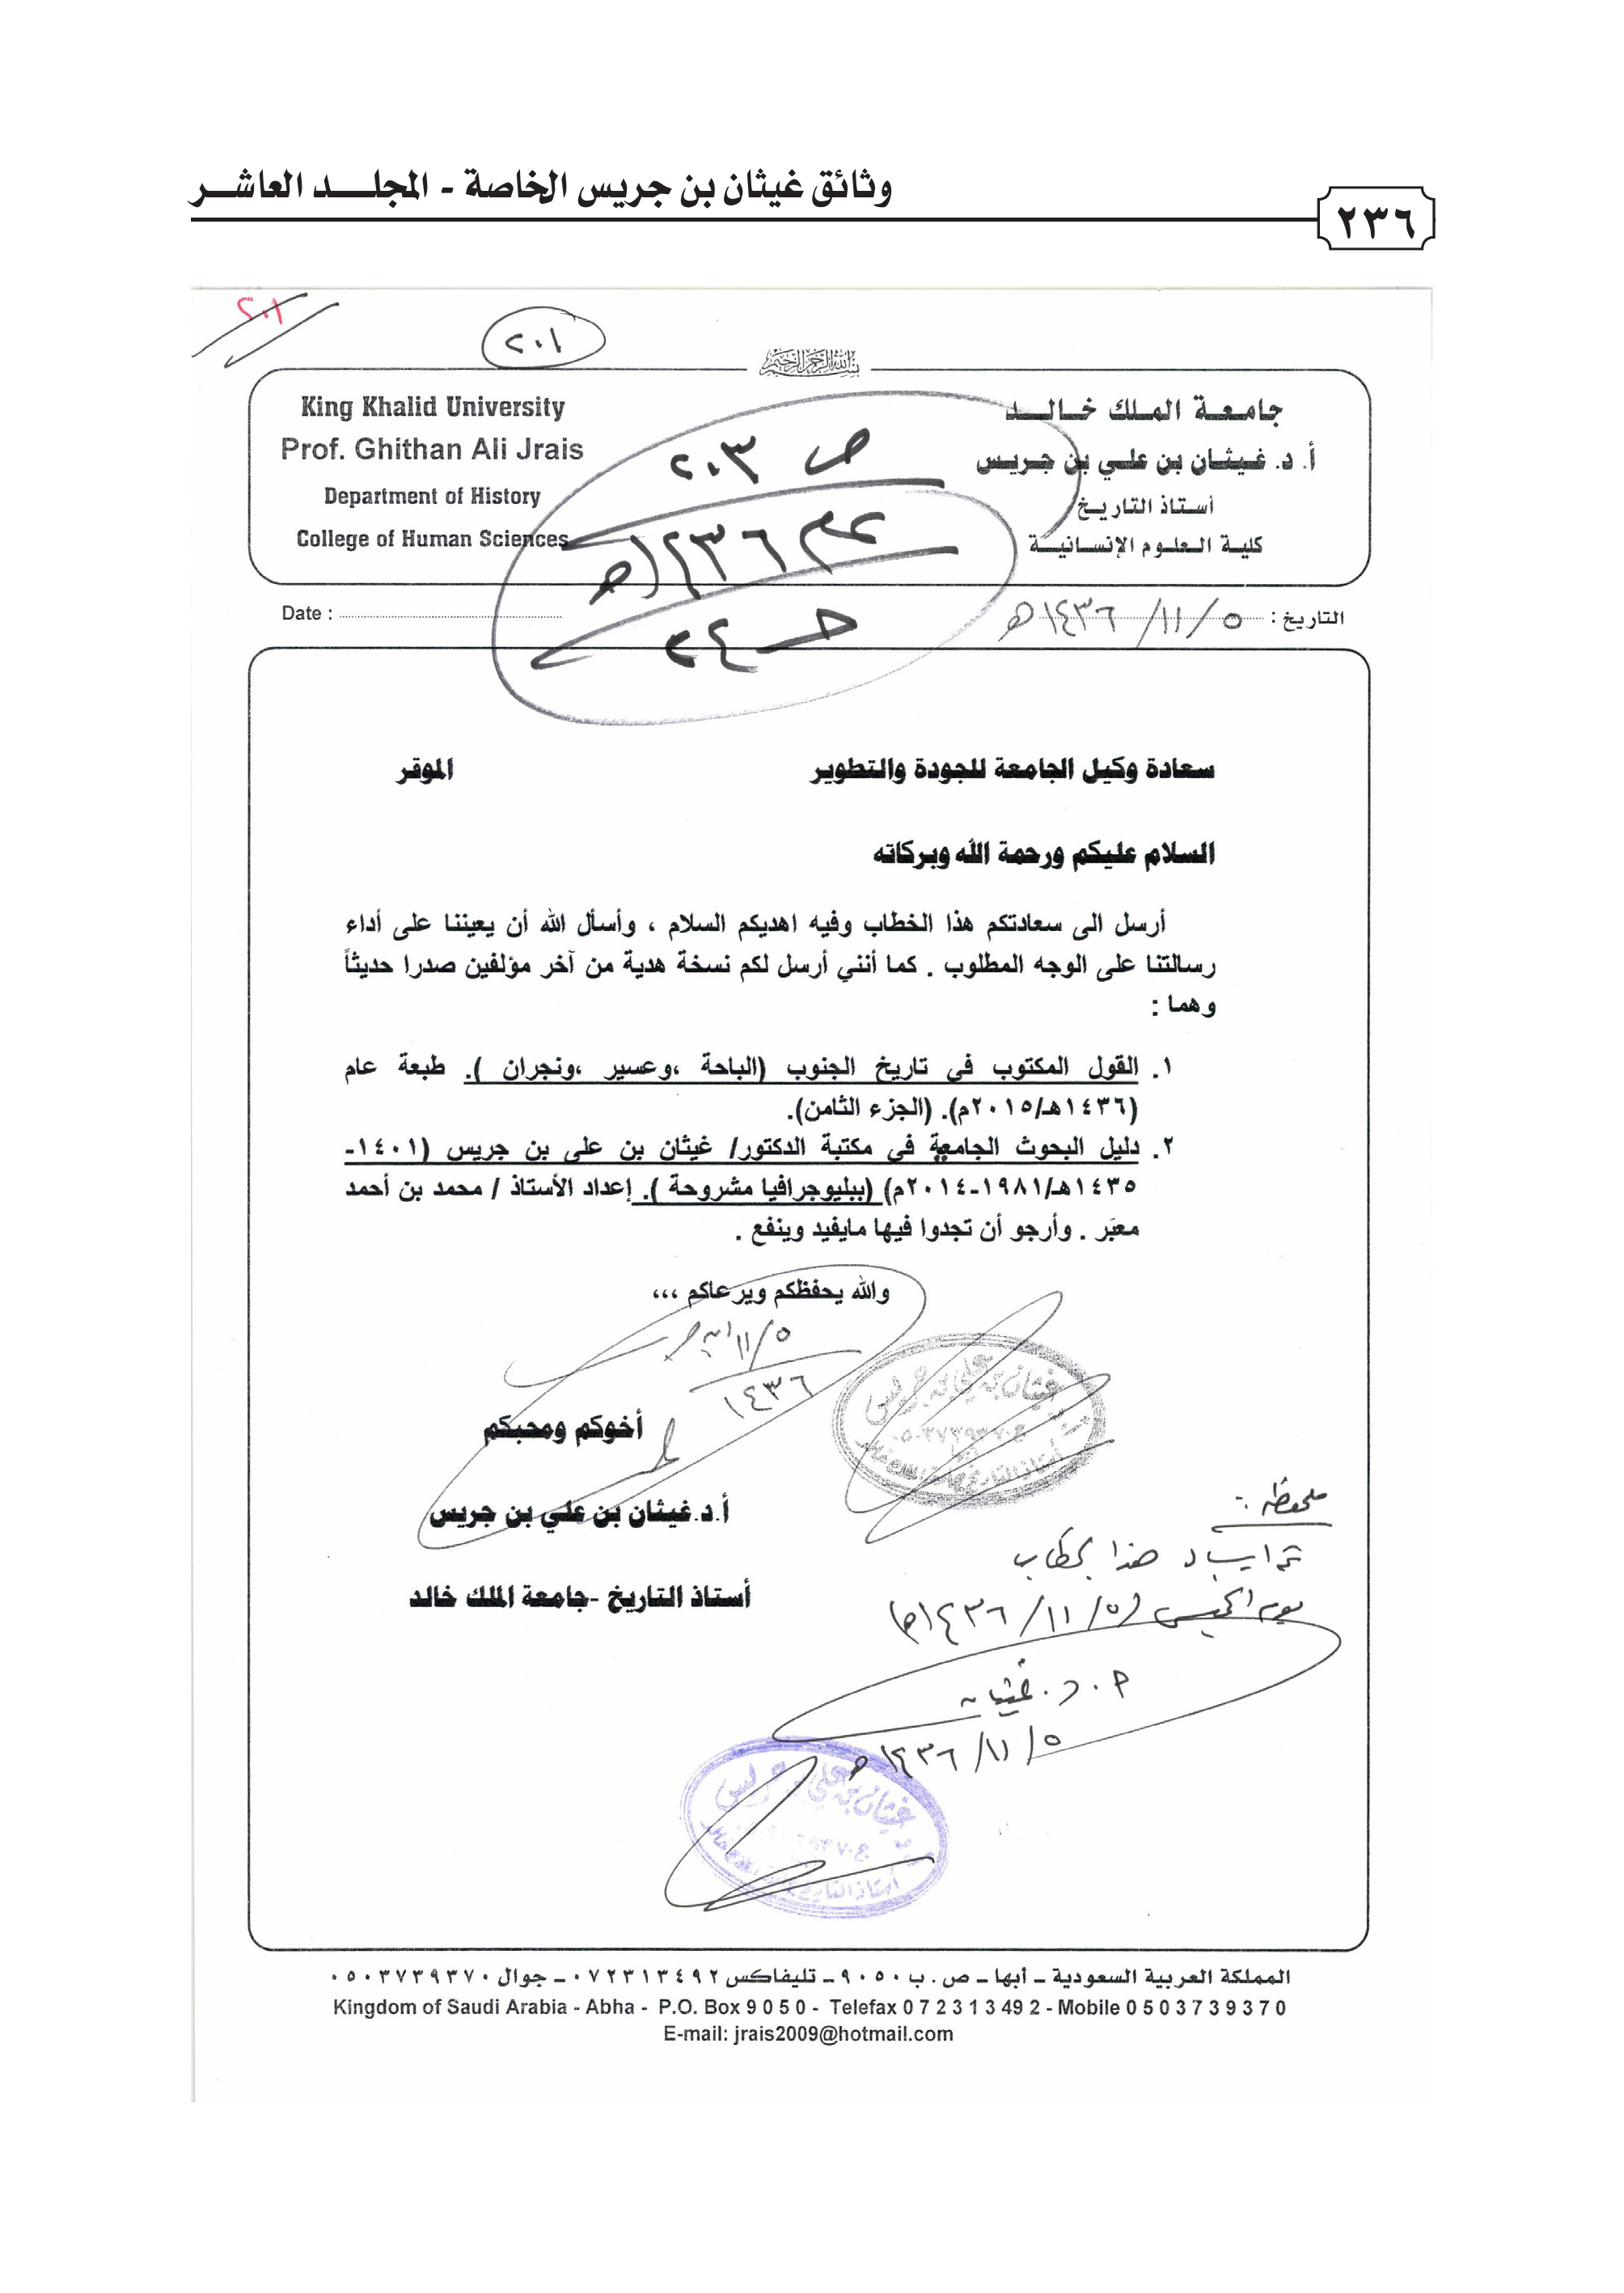 وثائق غيثان بن جريس الخاصة - المجلــد العاشــر
٢٣٦
٢٠١
٢٠١
بسم الله الرحمن الرحيم
جامعـة الملـك خـالـد
أ. د. غيـثـان بن علـي بن جريـس
أستاذ التاريـخ
كلية العلـوم الإنسانيـة
King Khalid University
Prof. Ghithan Ali Jrais
Department of History
College of Human Sciences
ص ٢٠٣
٢٤
التاريخ : ٥/ ١١/ ١٤٣٦هـ
Date :
سعادة وكيل الجامعة للجودة والتطوير الموقر
السلام عليكم ورحمة الله وبركاته
أرسل الى سعادتكم هذا الخطاب وفيه اهديكم السلام ، وأسأل الله أن يعيننا على أداء
رسالتنا على الوجه المطلوب . كما أنني أرسل لكم نسخة هدية من آخر مؤلفين صدرا حديثاً
وهما :
١. القول المكتوب في تاريخ الجنوب (الباحة ،وعسير ،ونجران ). طبعة عام
(١٤٣٦هـ/٢٠١٥م). (الجزء الثامن).
٢. دليل البحوث الجامعية في مكتبة الدكتور/ غيثان بن علي بن جريس (١٤٠١-
١٤٣٥هـ/١٩٨١-٢٠١٤م) (ببليوجرافيا مشروحة ). إعداد الأستاذ / محمد بن أحمد
معبَر . وأرجو أن تجدوا فيها مايفيد وينفع .
والله يحفظكم ويرعاكم ،،،
٥/ ١١
١٤٣٦
أخوكم ومحبكم
غيثان بن علي بن جريس
أ.د.غيثان بن علي بن جريس
أستاذ التاريخ -جامعة الملك خالد
ملحوظة :-
هذا الخطاب
يوم الخميس (٥/ ١١/ ١٤٣٦هـ)
أ. د. غيثان
٥/ ١١/ ١٤٣٦هـ
غيثان بن علي بن جريس
المملكة العربية السعودية ـ أبها ـ ص . ب ٩٠٥٠ ـ تليفاكس ٠٧٢٣١٣٤٩٢ ـ جوال ٠٥٠٣٧٣٩٣٧٠
Kingdom of Saudi Arabia - Abha - P.O. Box 9 0 5 0 - Telefax 0 7 2 3 1 3 49 2 - Mobile 0 5 0 3 7 3 9 3 7 0
E-mail: jrais2009@hotmail.com